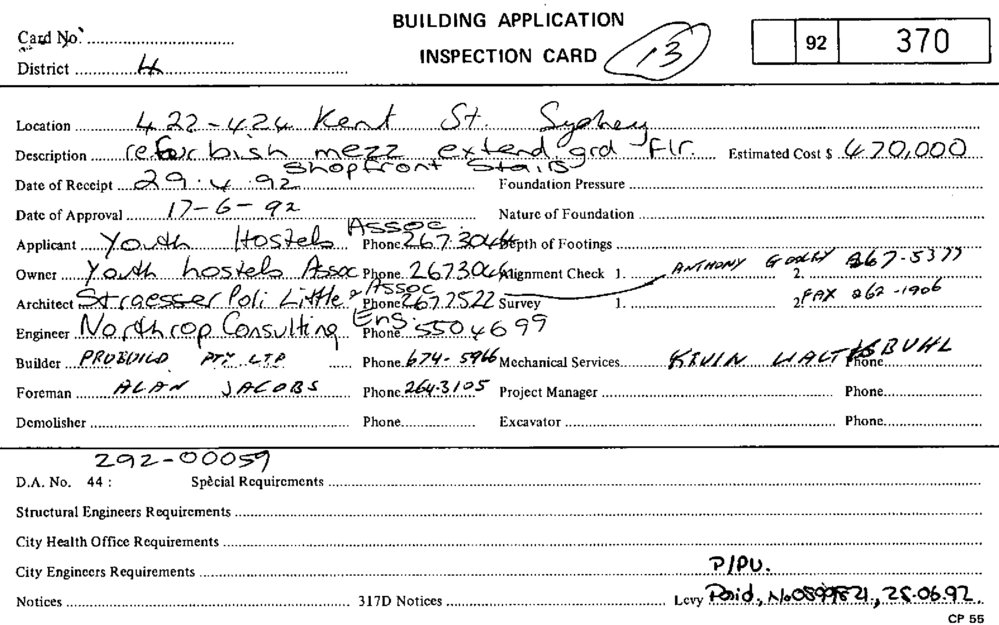 BUILDING APPLICATION
INSPECTION CARD
13
92 370
Card No.
District H
Location 422-424 Kent St. Sydney
Description refurbish mezz extend grd flr. Estimated Cost $ 470,000
Shopfront Stairs
Date of Receipt 29.4.92 Foundation Pressure
Date of Approval 17-6-92 Nature of Foundation
Applicant Youth Hostels Assoc. Phone 267.3044 Depth of Footings
Owner Youth hostels Assoc Phone 2673044 Alignment Check 1. ANTHONY 2. 267-5377
Architect Straesser Poli Little & Assoc Phone 267.7522 Survey 1. 2. FAX 262-1906
Engineer Northrop Consulting Eng. Phone 5504699
Builder PROBUILD PTY LTD Phone 674-5966 Mechanical Services KEVIN Phone
Foreman ALAN JACOBS Phone 264.3105 Project Manager Phone
Demolisher Phone Excavator Phone
292-00059
D.A. No. 44 : Special Requirements
Structural Engineers Requirements
City Health Office Requirements
City Engineers Requirements P/PU.
Notices 317D Notices Levy Paid, No0899821, 25.06.92
CP 55